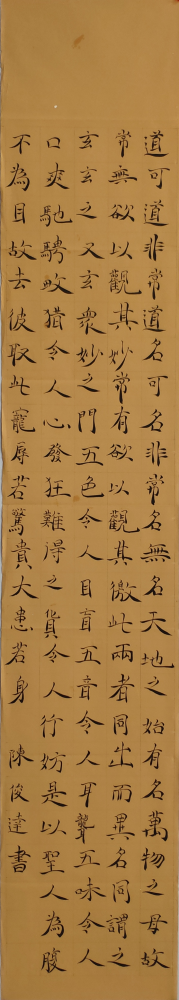 道可道非常道名可名非常名無名天地之始有名萬物之母故
常無欲以觀其妙常有欲以觀其徼此兩者同出而異名同謂之
玄玄之又玄衆妙之門五色令人目盲五音令人耳聾五味令人
口爽馳騁畋猎令人心發狂難得之貨令人行妨是以聖人為腹
不為目故去彼取此寵辱若驚貴大患若身 陳俊達書